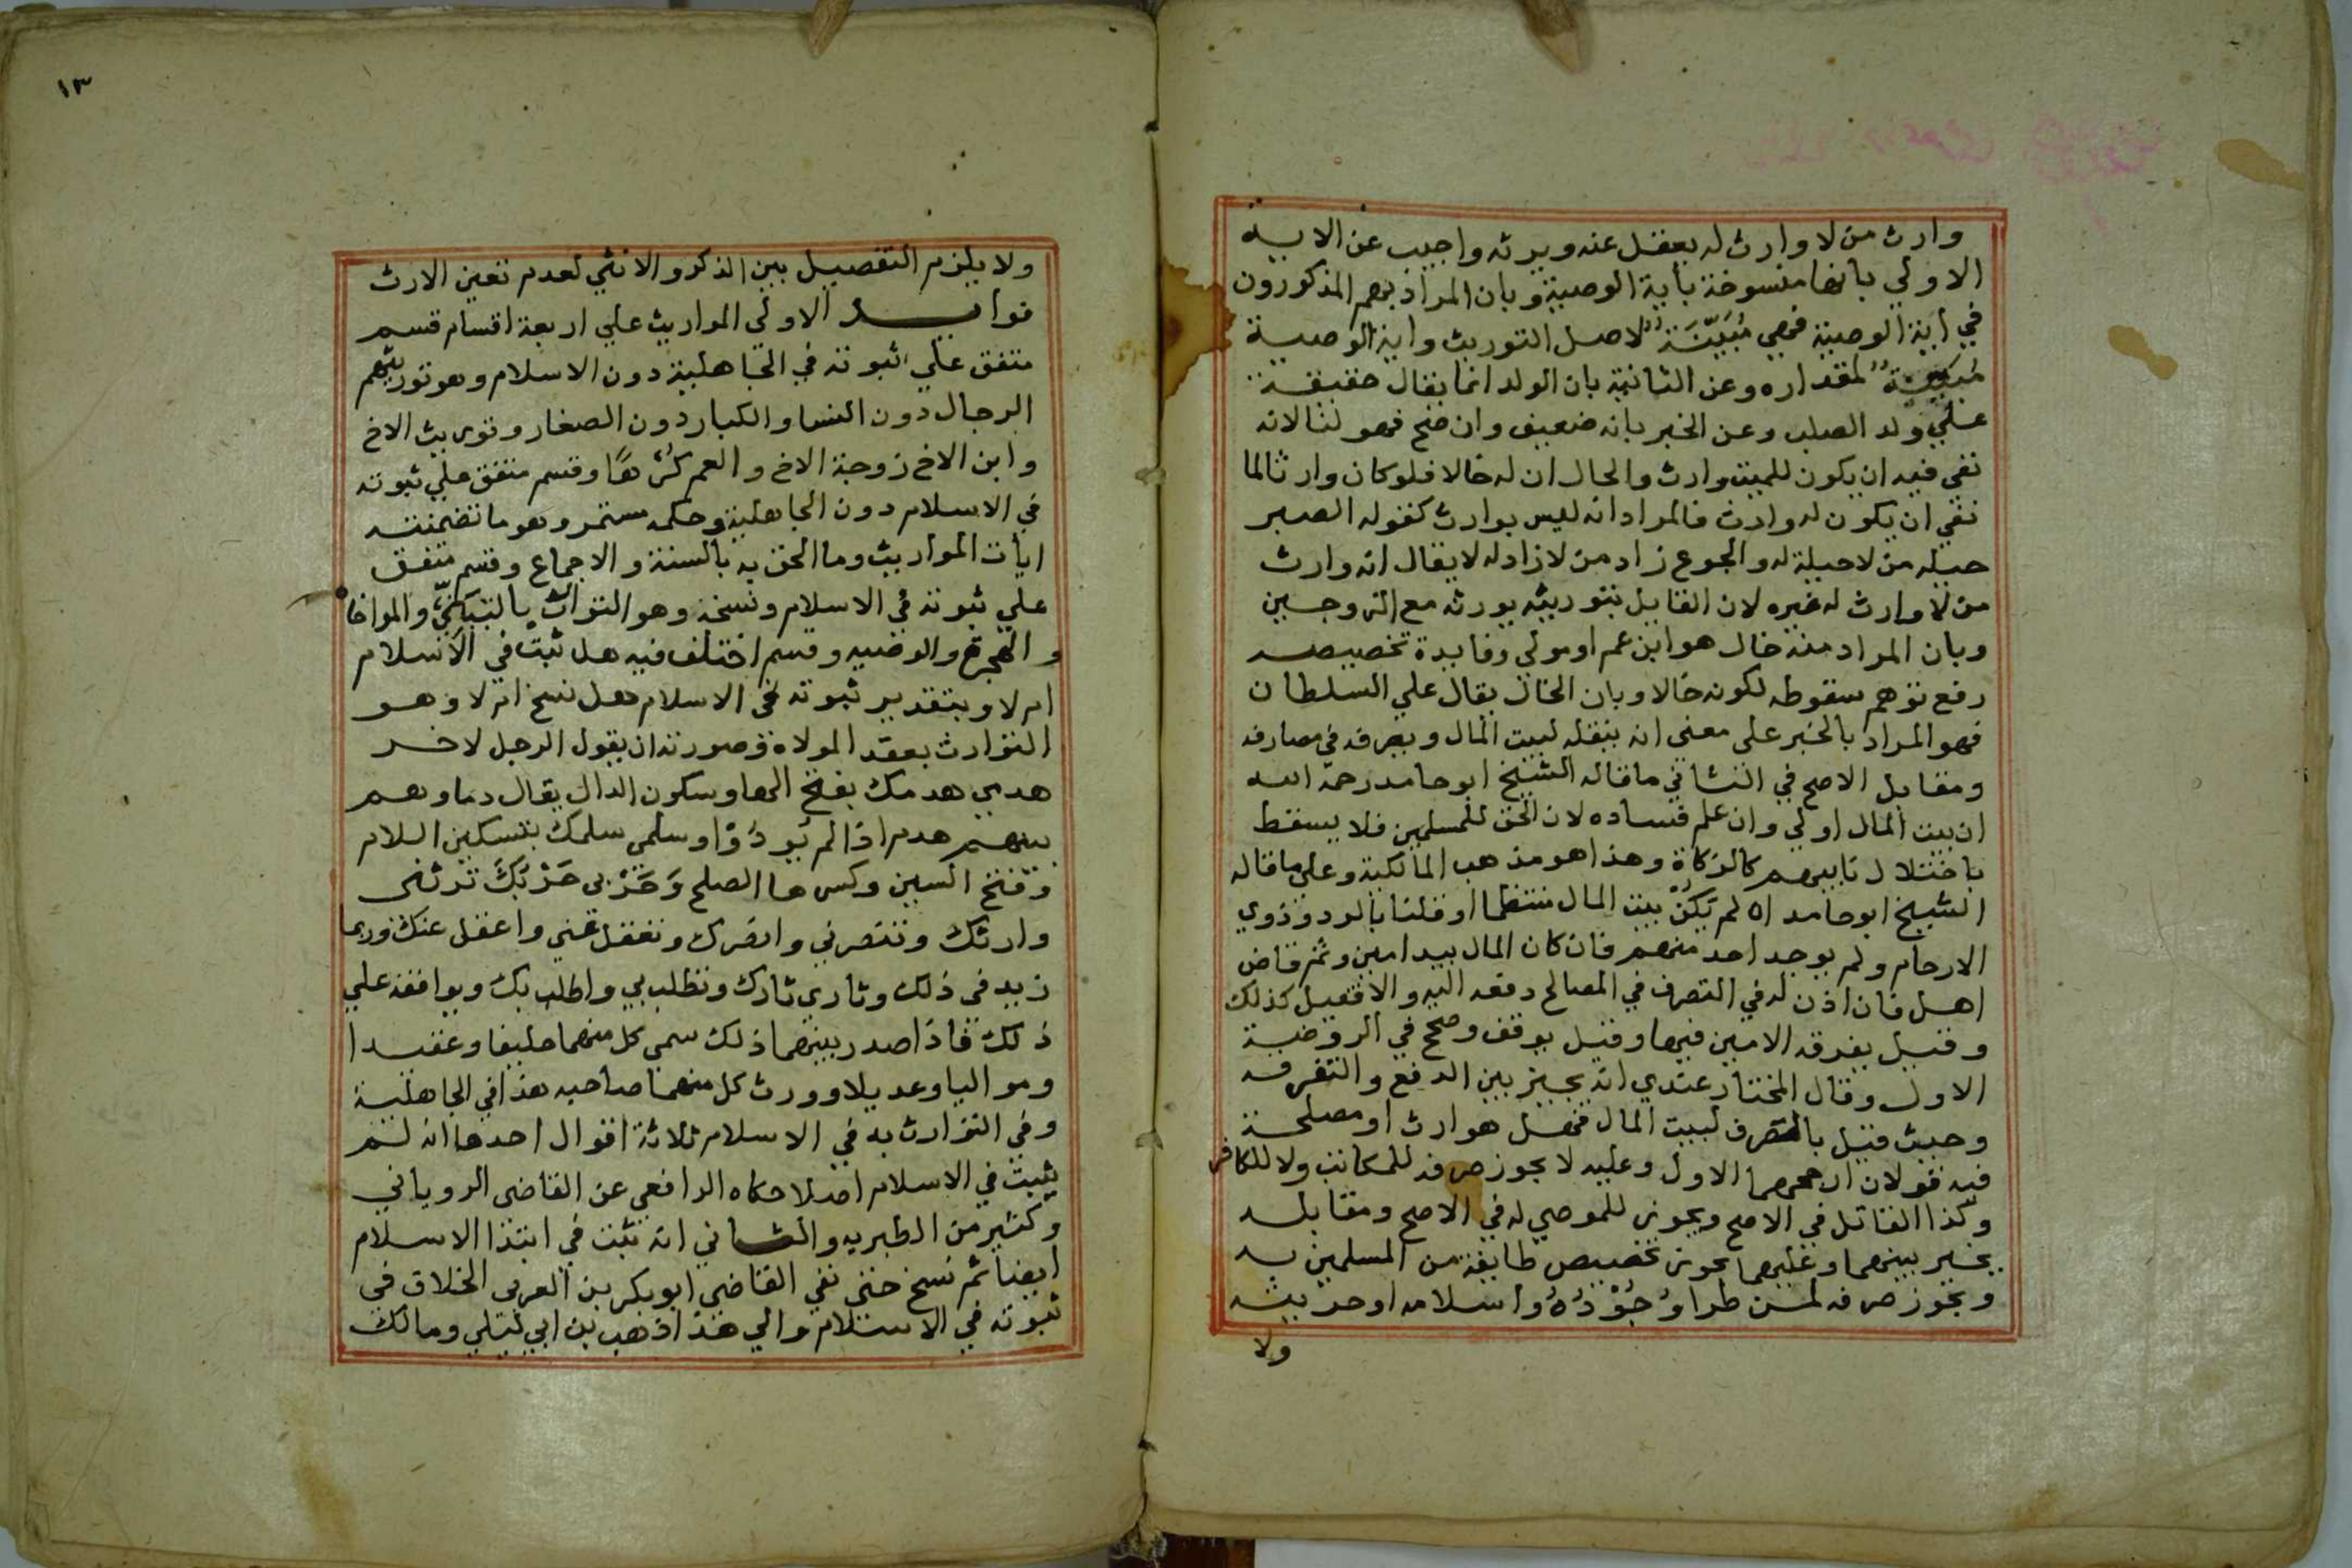 وارث من لا وارث له يعقل عنه ويرثه واجيب عن الايه
الاولي بانها منسوخة باية الوصية وبان المراد بهم المذكورون
في اية الوصية فهي مُبَيّنَة لاصل التوريث واية الوصية
مُبيّنة لمقداره وعن الثانية بان الولد انما يقال حقيقة
علي ولد الصلب وعن الخبر بانه ضعيف وان صح فهو لنا لانه
نفي فيه ان يكون للميت وارث والحال ان له خالا فلو كان وارثا لما
نفي ان يكون له وارث فالمراد انه ليس بوارث كقوله الصبر
حيله من لا حيلة له والجوع زاد من لا زاد له لا يقال انه وارث
من لا وارث له غيره لان القايل بتوريثه يورثه مع الزوجين
وبان المراد منه خال هو ابن عم او مولي وفايدة تخصيصه
رفع توهم سقوطه لكونه خالا وبان الخال يقال علي السلطان
فهو المراد بالخبر على معنى انه ينقله لبيت المال ويصرفه في مصارفه
ومقابل الاصح في الثاني ما قاله الشيخ ابو حامد رحمة الله
ان بيت المال اولي وان علم فساده لان الحق للمسلمين فلا يسقط
باختلال نايبهم كالزكاة وهذا هو مذهب المالكية وعلى ما قاله
الشيخ ابو حامد ان لم يَكُنْ بيت المال منتظما او قلنا بالرد وذوي
الارحام ولم يوجد احد منهم فان كان المال بيد امين وثم قاض
اهل فان اذن له في التصرف في المصالح دفعه اليه والا فقيل كذلك
وقيل يفرقه الامين فيها وقيل يوقف وصحح في الروضة
الاول وقال المختار عندي انه يخير بين الدفع والتفرقه
وحيث قيل بالصرف لبيت المال فهل هو ارث او مصلحة
فيه قولان ارجحهما الاول وعليه لا يجوز صرفه للمكاتب ولا للكافر
وكذا القاتل في الاصح ويجوز للموصي له في الاصح ومقابله
يخير بينهما وعليهما يجوز تخصيص طايفة من المسلمين به
ويجوز صرفه لمن طرا وُجُوْدُهُ واسلامه او حريته
ولا
١٣
ولا يلزم التفصيل بين الذكر والانثي لعدم تعين الارث
فوايد الاولي المواريث علي اربعة اقسام قسم
متفق علي ثبوته في الجاهلية دون الاسلام وهو توريثهم
الرجال دون النسا والكبار دون الصغار وتوريث الاخ
وابن الاخ زوجة الاخ والعم كُرْهًا وقسم متفق علي ثبوته
في الاسلام دون الجاهلية وحكمه مستمر وهو ما تضمنته
ايات المواريث وما الحق به بالسنة والاجماع وقسم متفق
علي ثبوته في الاسلام ونسخه وهو التوارث بالتبَنّيّ والمواخا
و الهجرة والوصيه وقسم اختلف فيه هل ثبت في الاسلام
ام لا وبتقدير ثبوته في الاسلام هل نسخ ام لا وهو
التوارث بعقد المولاة وصورته ان يقول الرجل لاخر
هدمي هدمك بفتح الها وسكون الدال يقال دماوهم
بينهم هدم اذا لم يُودُوْا وسلمي سلمك بتسكين اللام
وفتح السين وكسرها الصلح وَحَرْبي حَرْبَكَ ترثني
وارثك وتنصرني وانصرك وتعقل عني واعقل عنك وربما
زيد في ذلك وثاري ثارك وتطلب بي واطلب بك ويوافقه علي
ذلك فاذا صدر بينهما ذلك سمي كل منهما حليفا وعقيدا
ومواليا وعديلا وورث كل منهما صاحبه هذا في الجاهلية
وفي التوارث به في الاسلام ثلاثة اقوال احدها انه لم
يثبت في الاسلام اصلا حكاه الرافعي عن القاضي الروياني
وكثير من الطبريه والثاني انه ثبت في ابتدا الاسلام
ايضا ثم نسخ حتى نفي القاضي ابو بكر بن العربي الخلاف في
ثبوته في الاسلام والي هذا ذهب بن ابي ليلي ومالك